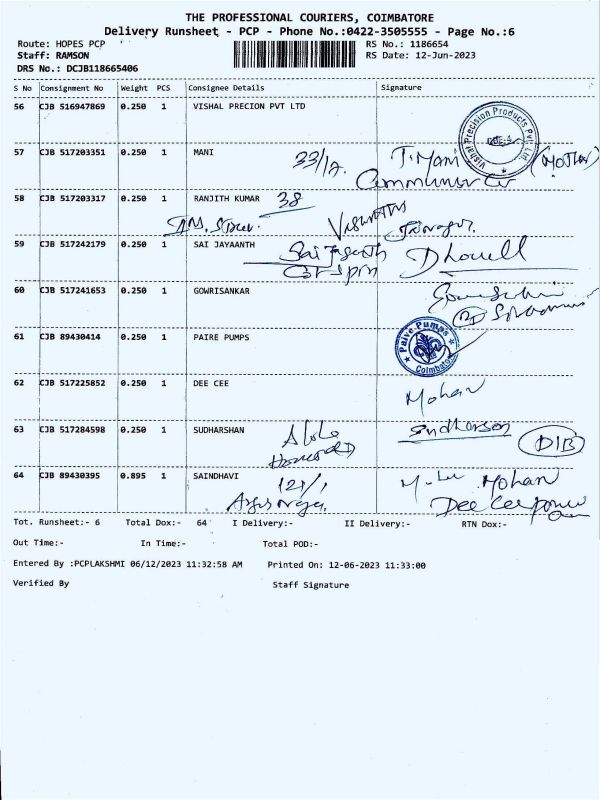 THE PROFESSIONAL COURIERS, COIMBATORE
Delivery Runsheet - PCP - Phone No.:0422-3505555 - Page No.:6
Route: HOPES PCP RS No.: 1186654
Staff: RAMSON RS Date: 12-Jun-2023
DRS No.: DCJB118665406
S No Consignment No Weight PCS Consignee Details Signature
56 CJB 516947869 0.250 1 VISHAL PRECION PVT LTD
Vishal Precision Products Pvt. Ltd.
57 CJB 517203351 0.250 1 MANI 33/12. T. Mani (Mother)
58 CJB 517203317 0.250 1 RANJITH KUMAR 38
59 CJB 517242179 0.250 1 SAI JAYAANTH
60 CJB 517241653 0.250 1 GOWRISANKAR
61 CJB 89430414 0.250 1 PAIRE PUMPS
Paive Pumps Coimbatore
62 CJB 517225852 0.250 1 DEE CEE Mohan
63 CJB 517284598 0.250 1 SUDHARSHAN Sudharson
64 CJB 89430395 0.895 1 SAINDHAVI Mohan
Tot. Runsheet:- 6 Total Dox:- 64 I Delivery:- II Delivery:- RTN Dox:-
Out Time:- In Time:- Total POD:-
Entered By :PCPLAKSHMI 06/12/2023 11:32:58 AM Printed On: 12-06-2023 11:33:00
Verified By Staff Signature